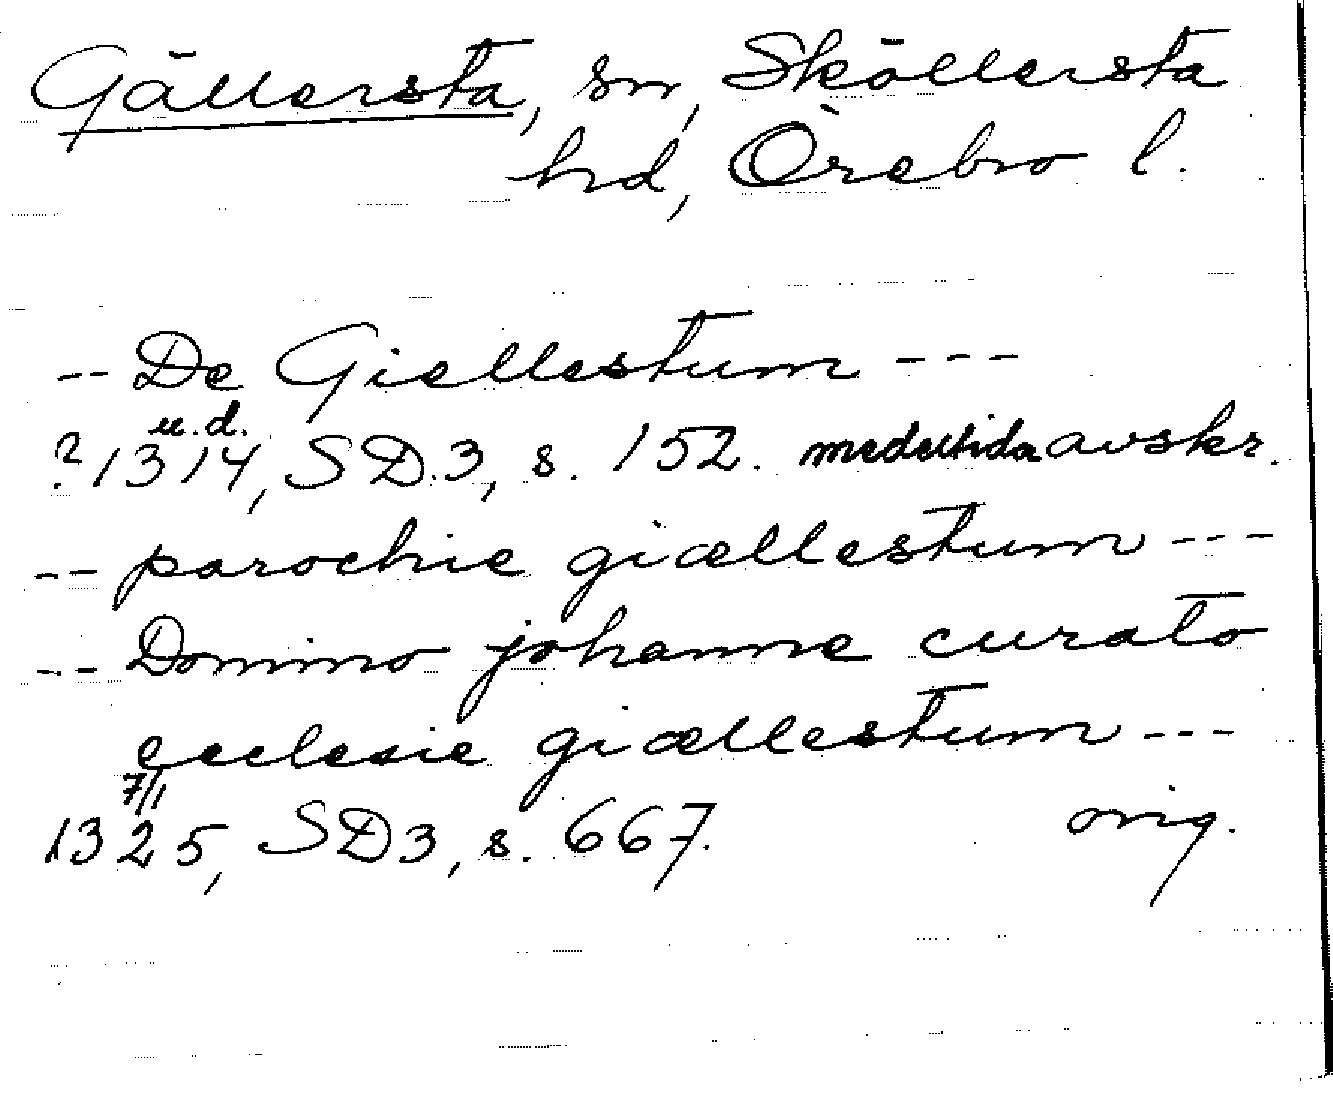 Gällersta, sn, Sköllersta
hd, Örebro l.
-- De Giellestum ---
u.d.
? 1314, SD 3, s. 152. medeltida avskr.
-- parochie giællestum ---
-- Domino johanne curato
ecclesie giællestum ---
7/1
1325, SD 3, s. 667. orig.